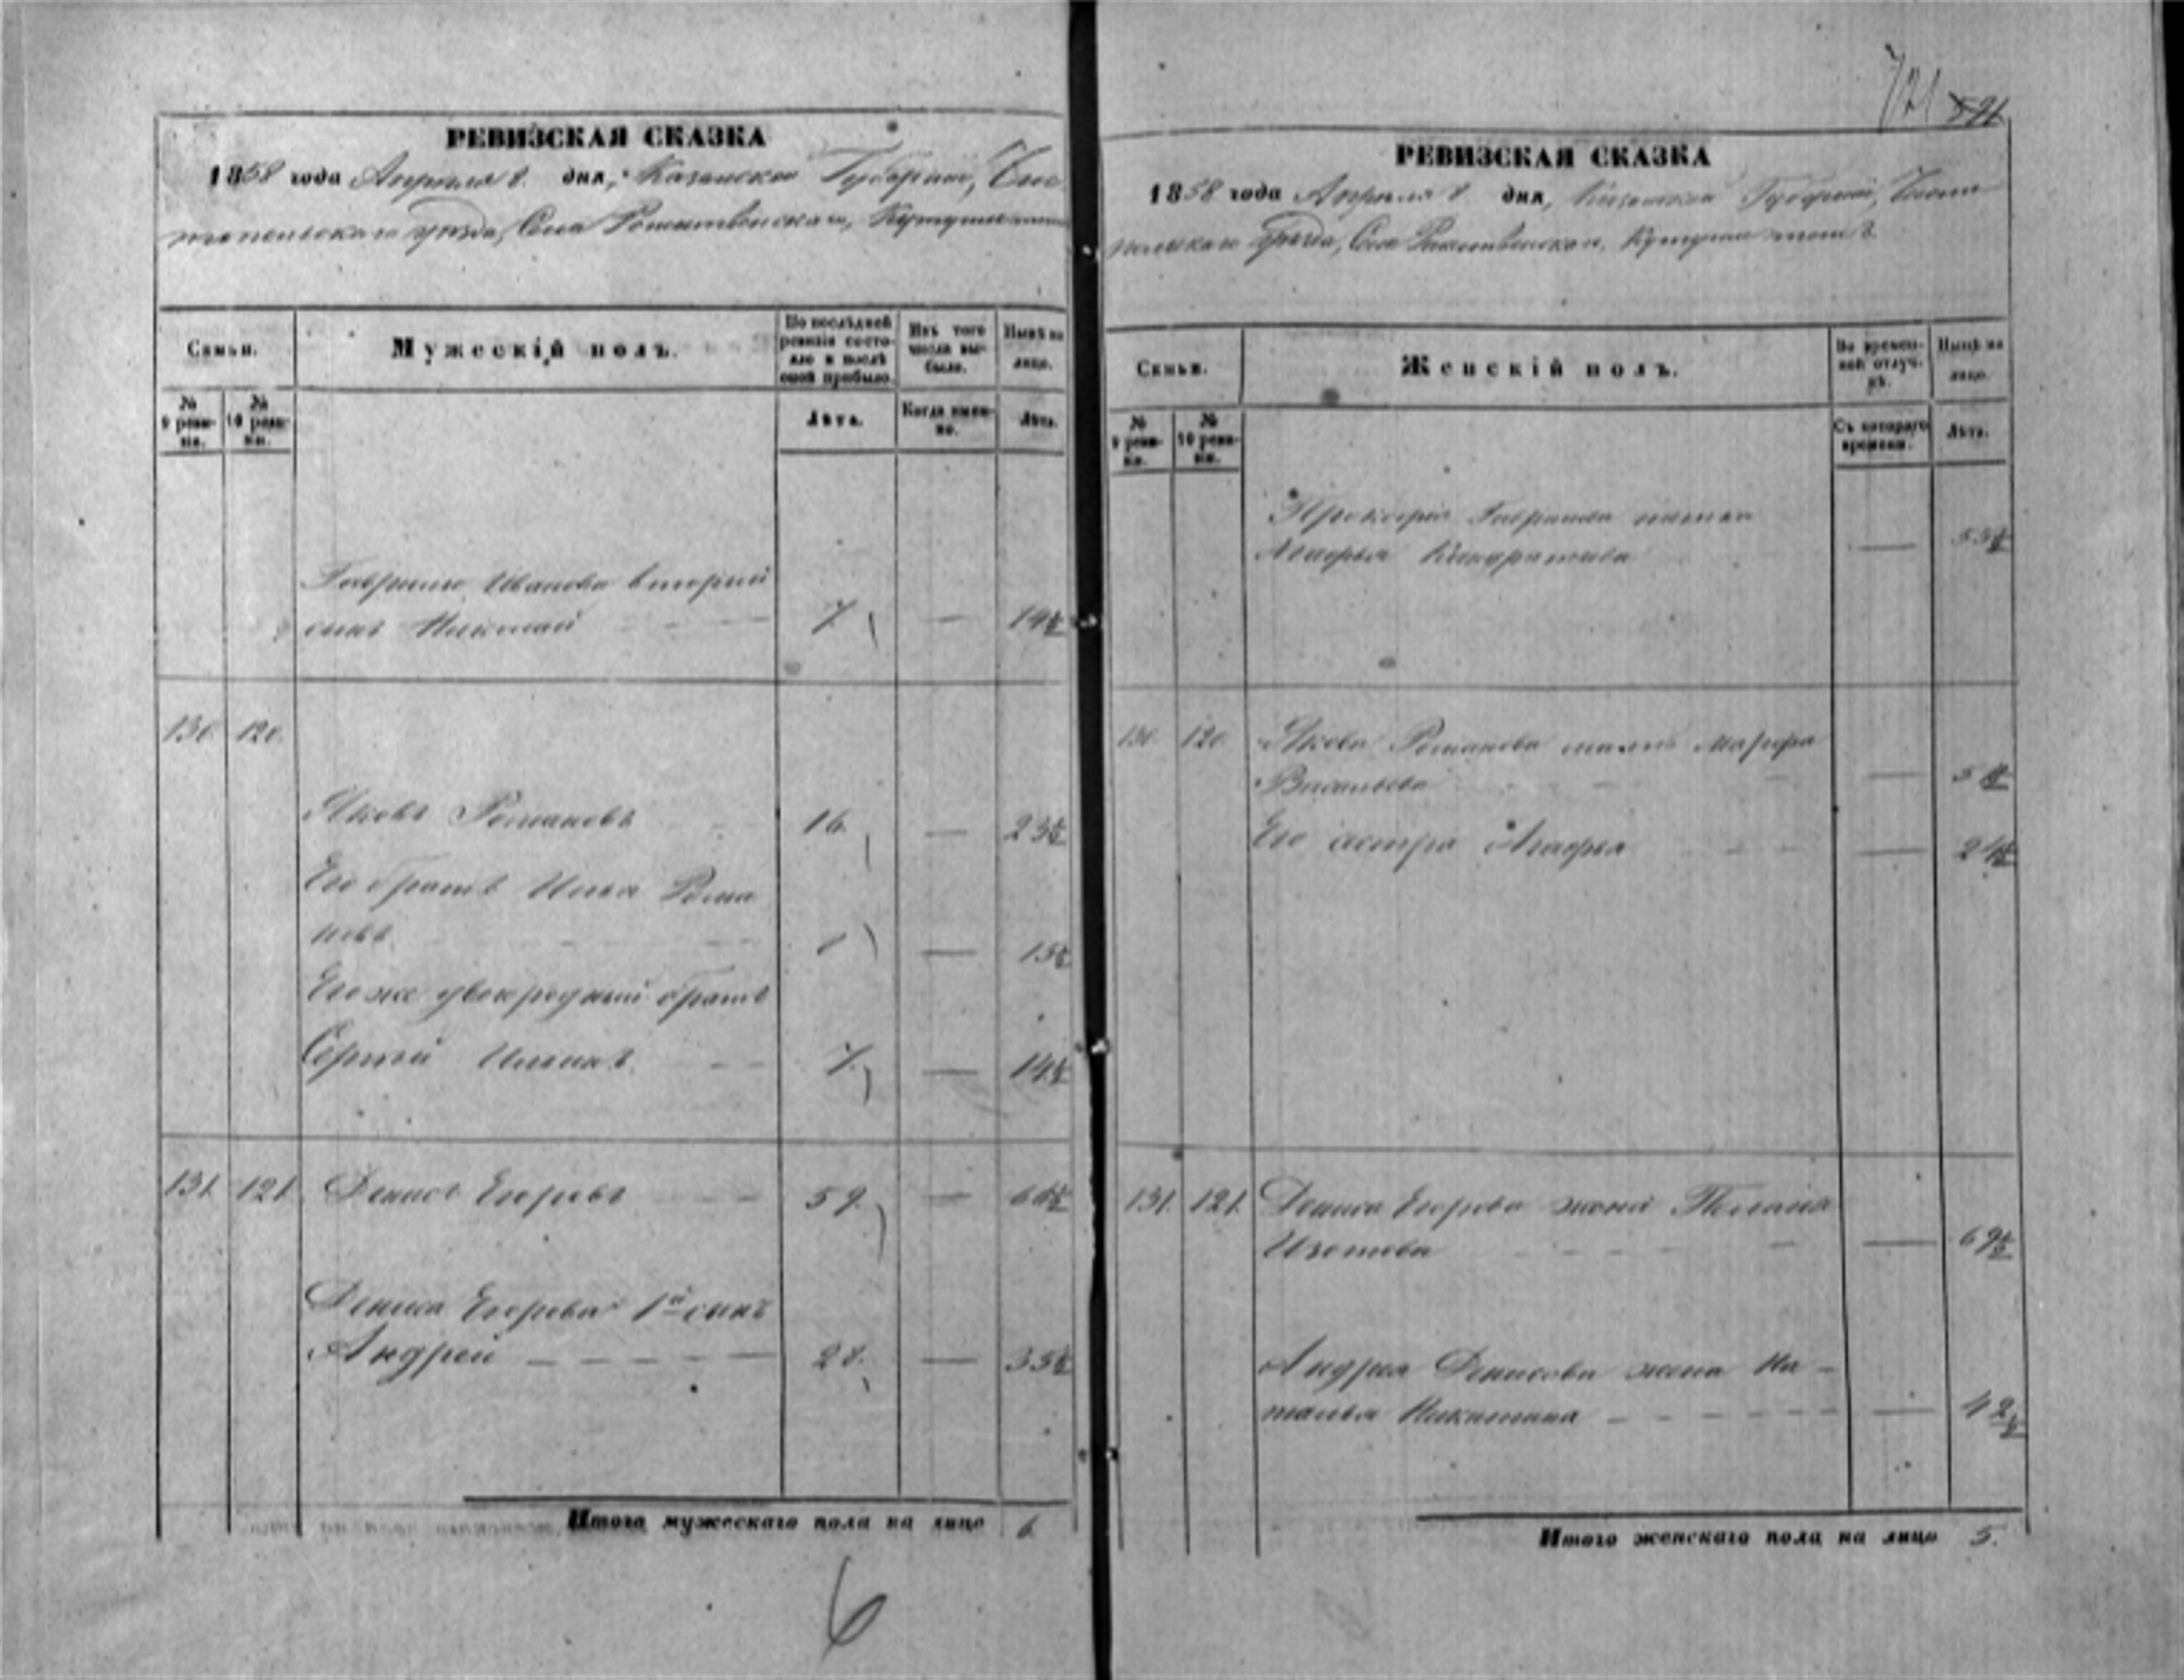 РЕВИЗСКАЯ СКАЗКА
1858 года Апреля 8. дня, Казанской Губернiи, Чис
топольскаго уѣзда, Села Рожественскаго,
Семьи.
Мужескiй полъ.
По послѣдней ревизiи состояло и послѣ оной прибыло.
Изъ того числа выбыло.
Нынѣ на лицо.
№ 9 ревизiи.
№ 10 ревизiи.
Лѣта.
Когда именно.
Лѣта.
Гаврилы Иванова второй
сынъ Николай 7 — 14½
130. 120.
Яковъ Романовъ 16. — 23½
Его братъ Илья Рома
новъ — 15½
Его же двоюродный братъ
Сергѣй Ильинъ 7. — 14½
131. 121. Денисъ Егоровъ 59. — 66½
Дениса Егорова 1й сынъ
Андрей 28. — 35½
Итого мужескаго пола на лицо 6.
6
721 591
РЕВИЗСКАЯ СКАЗКА
1858 года Апреля 8. дня, Казанской Губернiи, Чисто
польскаго уѣзда, Села Рожественскаго,
Семьи.
Женскiй полъ.
Во временной отлучкѣ.
Нынѣ на лицо.
№ 9 ревизiи.
№ 10 ревизiи.
Съ котораго времени.
Лѣта.
Прокофья Гаврилова
Агафья Кондратьева — 55½
130. 120. Якова Романова мать
Васильева —
Его сестра Агафья —
131. 121. Дениса Егорова жена Пелагѣя
Изотова — 69½
Андрея Денисова жена На-
талья Никитина — 42½
Итого женскаго пола на лицо 5.